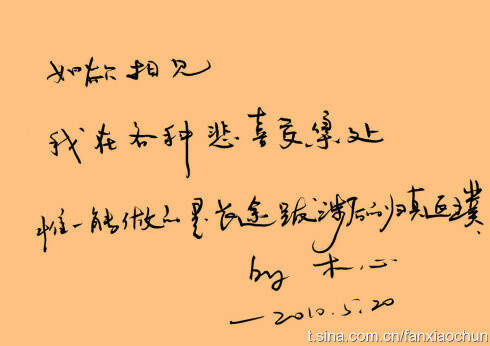 如欲相见
我在各种悲喜交集处
惟一能做的是长途跋涉后的归真返璞
by 木心
—2010.5.20
t.sina.com.cn/fanxiaochun